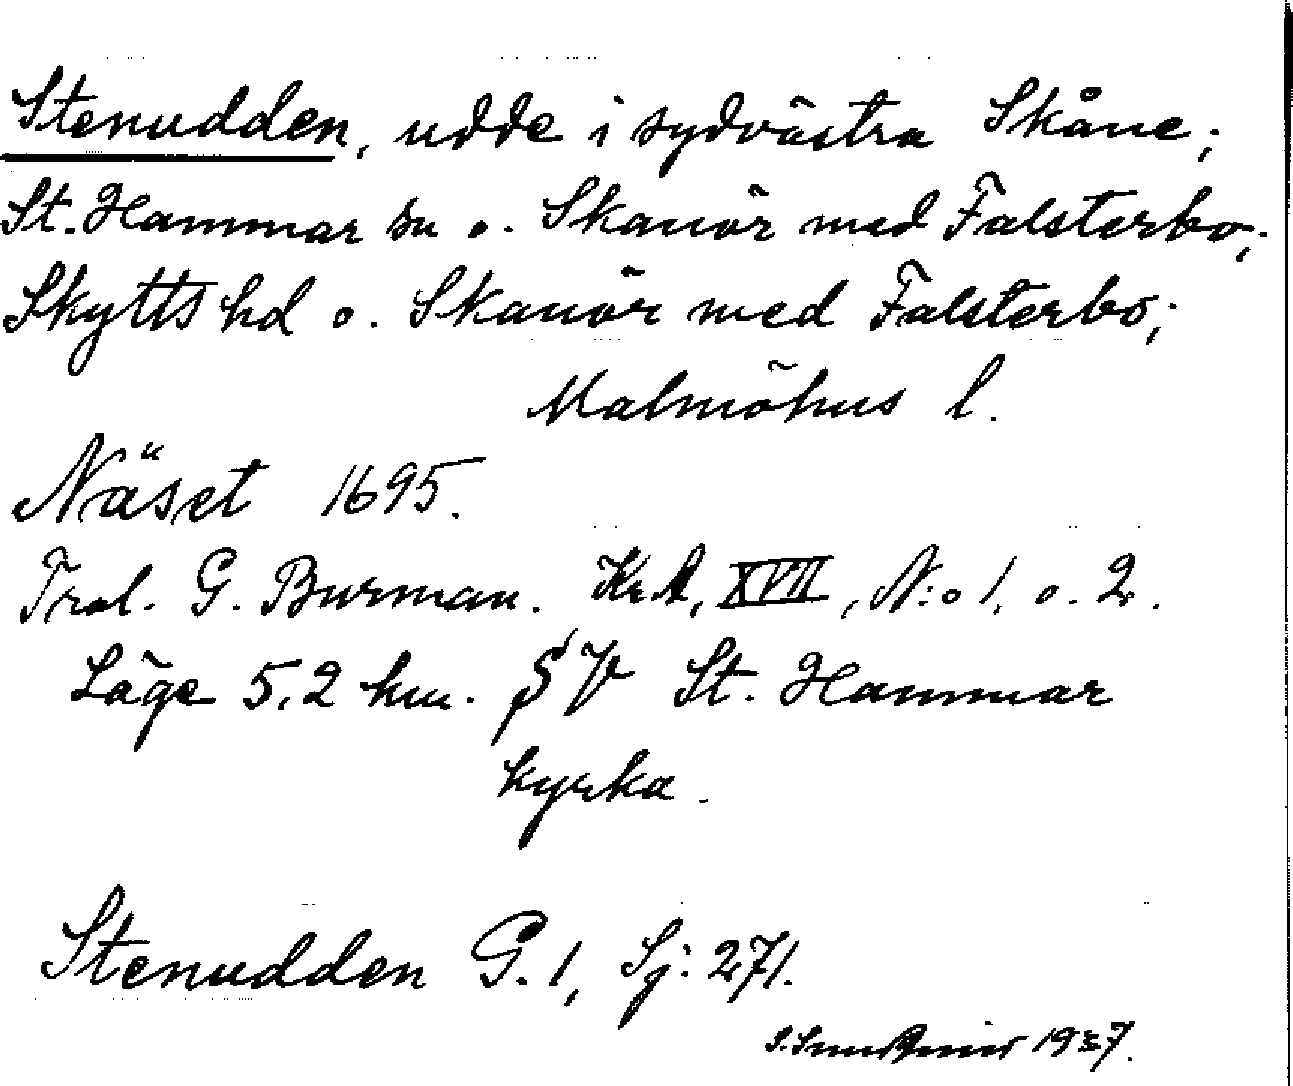 Stenudden, udde i sydvästra Skåne;
St. Hammar sn o. Skanör med Falsterbo;
Skytts hd o. Skanör med Falsterbo;
Malmöhus l.
Näset 1695.
Trol. G. Burman. KrA, XVII, N:o 1. o. 2.
Läge 5,2 km. SV St. Hammar
kyrka.
Stenudden G. 1, Sj: 271.
1937.